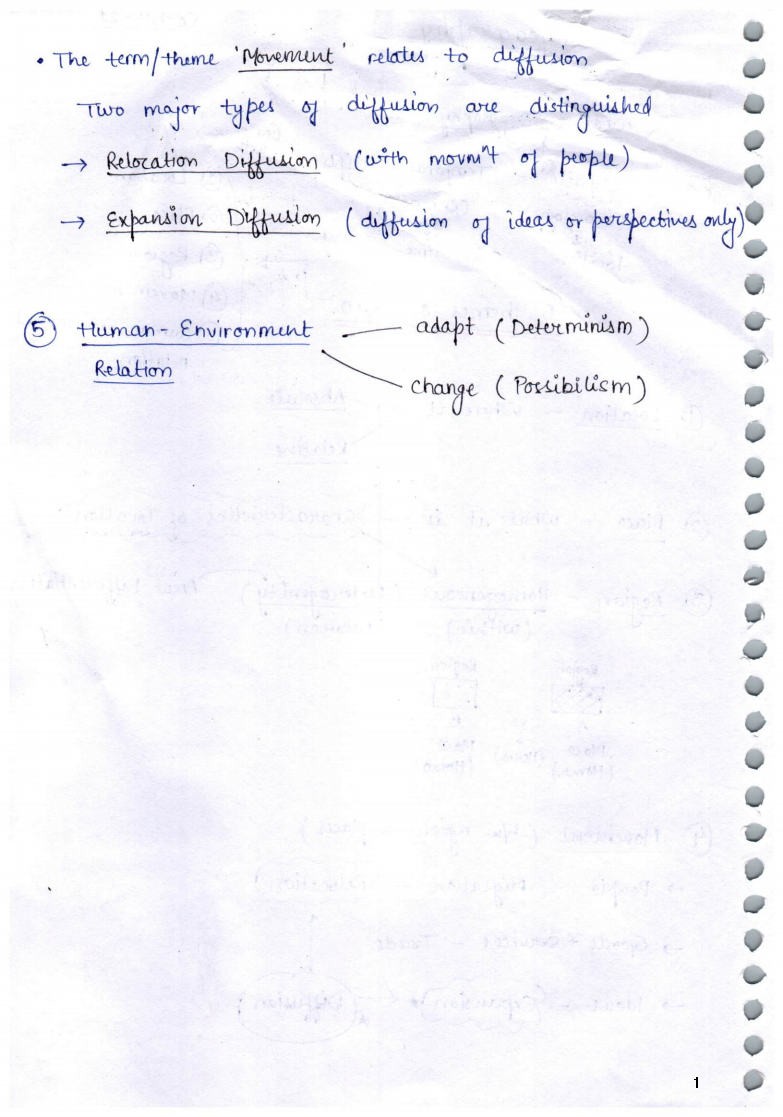 • The term/theme 'Movement' relates to diffusion
Two major types of diffusion are distinguished
→ Relocation Diffusion (with movm't of people)
→ Expansion Diffusion (diffusion of ideas or perspectives only)
5 Human - Environment
Relation
adapt (Determinism)
change (Possibilism)
1